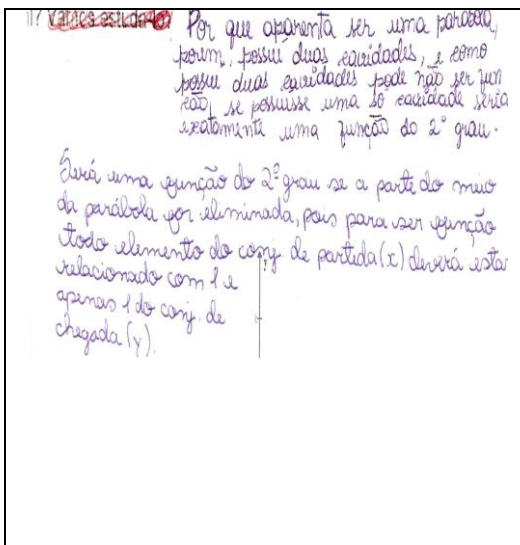 Por que aparenta ser uma parábola,
porem, possui duas cavidades, e como
possui duas cavidades pode não ser fun
ção, se possuisse uma só cavidade seria
exatamente uma função do 2º grau.
Será uma função do 2º grau se a parte do meio
da parábola for eliminada, pois para ser função
todo elemento do conj. de partida (x) deverá estar
relacionado com 1 e
apenas 1 do conj. de
chegada (y).